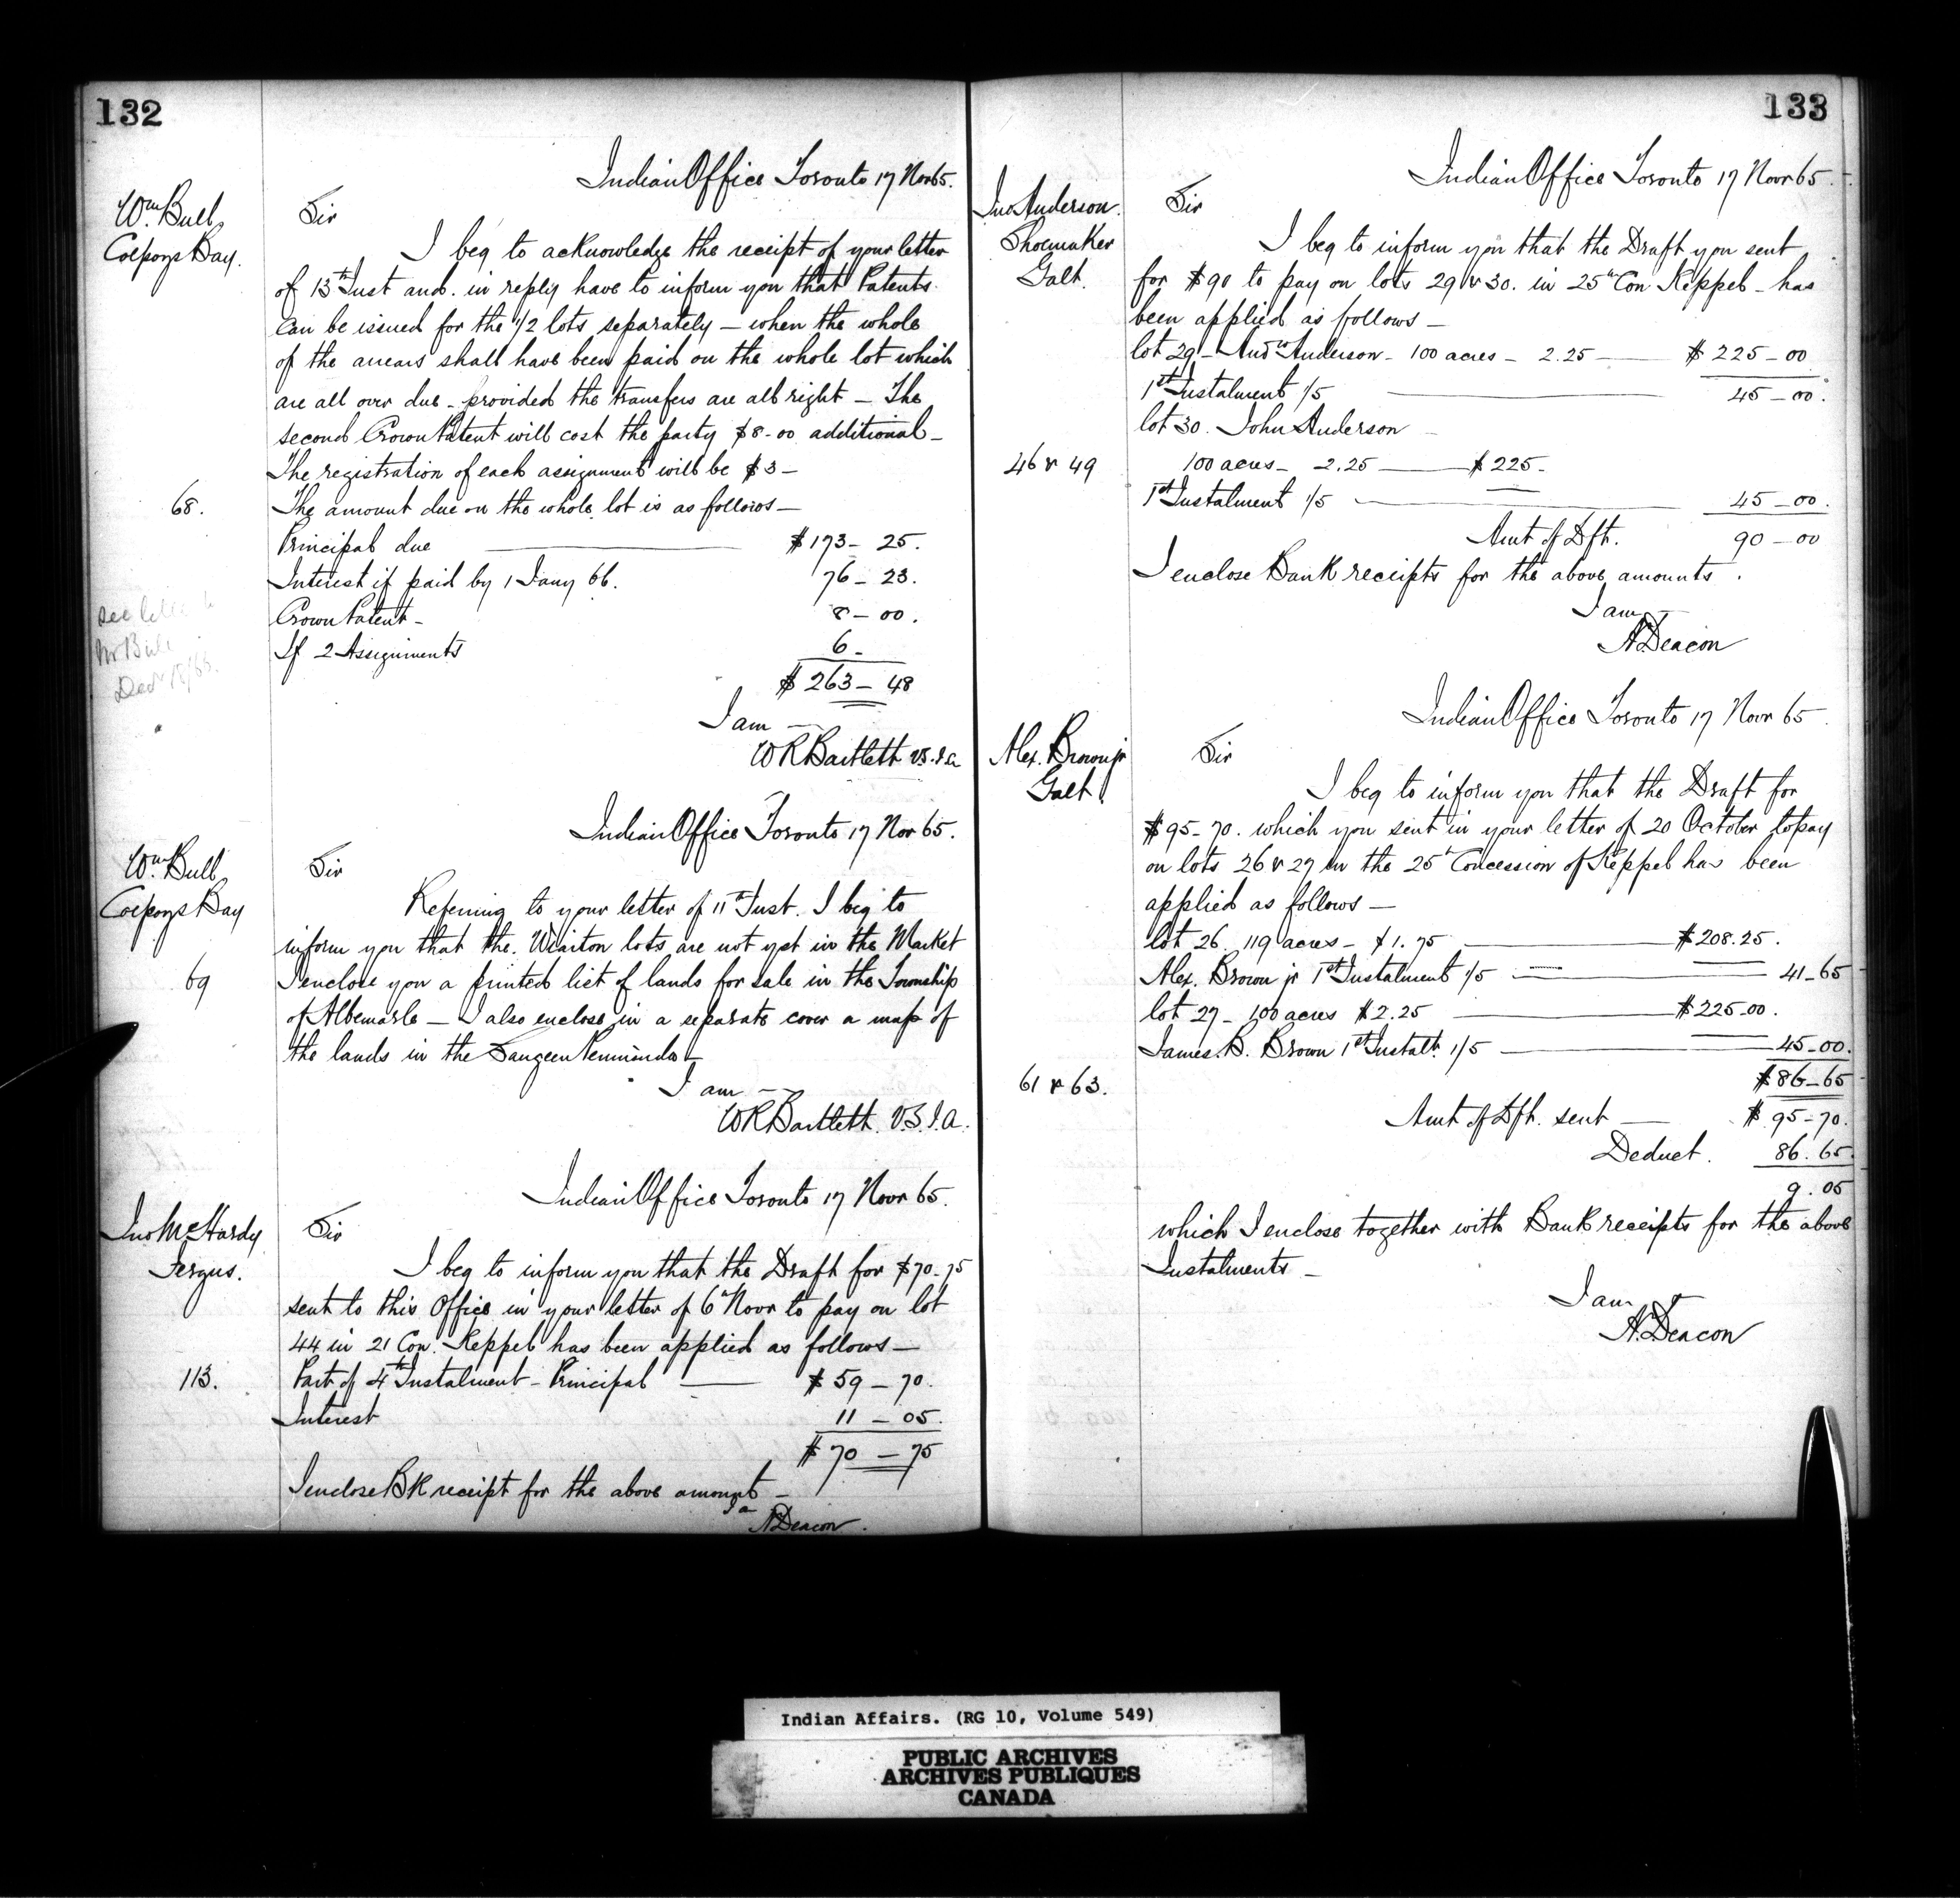 132
Indian Office Toronto 17 Nov 65.
Wm Bull
Colpoys Bay.
Sir
I beg to acknowledge the receipt of your letter
of 13th Inst and in reply have to inform you that Patents
can be issued for the 1/2 lots separately — when the whole
of the arrears shall have been paid on the whole lot which
are all over due - provided the transfers are all right — The
second Crown Patent will cost the party $8-00 additional —
The registration of each assignment will be $3 —
68.
The amount due on the whole lot is as follows —
Principal due $173 - 25.
Interest if paid by 1 Jany 66. 76 - 23.
Crown Patent - 8 - 00.
If 2 Assignments 6 -
$263 - 48
see letter to
Mr Bull
Decr /65.
I am —
W R Bartlett V.S.I.A
Indian Office Toronto 17 Nov 65.
Wm Bull
Colpoys Bay
Sir
Referring to your letter of 11th Inst. I beg to
inform you that the Wiarton lots are not yet in the Market
69
I enclose you a printed list of lands for sale in the Township
of Albemarle — I also enclose in a separate cover a map of
the lands in the Saugeen Peninsula —
I am —
W R Bartlett. V.S.I.A.
Indian Office Toronto 17 Novr 65.
Jno McHardy
Fergus.
Sir
I beg to inform you that the Draft for $70-75
sent to this Office in your letter of 6th Novr to pay on lot
44 in 21 Con. Keppel has been applied as follows —
113.
Part of 4th Instalment - Principal — $59 - 70.
Interest 11 - 05.
$70 - 75
I enclose Bk receipt for the above amount —
I a
A Deacon.
133
Indian Office Toronto 17 Novr 65.
Jno Anderson.
Shoemaker
Galt.
Sir
I beg to inform you that the Draft you sent
for $90 to pay on lots 29 & 30. in 25th Con Keppel - has
been applied as follows —
lot 29 - Andw Anderson - 100 acres - 2.25 — $225-00
1st Instalment 1/5 — 45-00.
lot 30. John Anderson —
46 & 49
100 acres - 2.25 — $225-
1st Instalment 1/5 — 45-00.
Amt of Dft. 90-00
I enclose Bank receipts for the above amounts.
I am —
A Deacon
Indian Office Toronto 17 Novr 65.
Alex. Brown jr
Galt.
Sir
I beg to inform you that the Draft for
$95-70. which you sent in your letter of 20 October to pay
on lots 26 & 27 in the 25th Concession of Keppel has been
applied as follows —
lot 26. 119 acres - $1.75 — $208.25.
Alex. Brown jr 1st Instalment 1/5 — 41-65
lot 27 - 100 acres $2.25 — $225-00.
James. B. Brown 1st Instalt. 1/5 — 45-00.
$86-65
61 & 63.
Amt of Dft. sent — $95-70.
Deduct. 86.65
9.05
which I enclose together with Bank receipts for the above
Instalments —
I am
A. Deacon
Indian Affairs. (RG 10, Volume 549)
PUBLIC ARCHIVES
ARCHIVES PUBLIQUES
CANADA